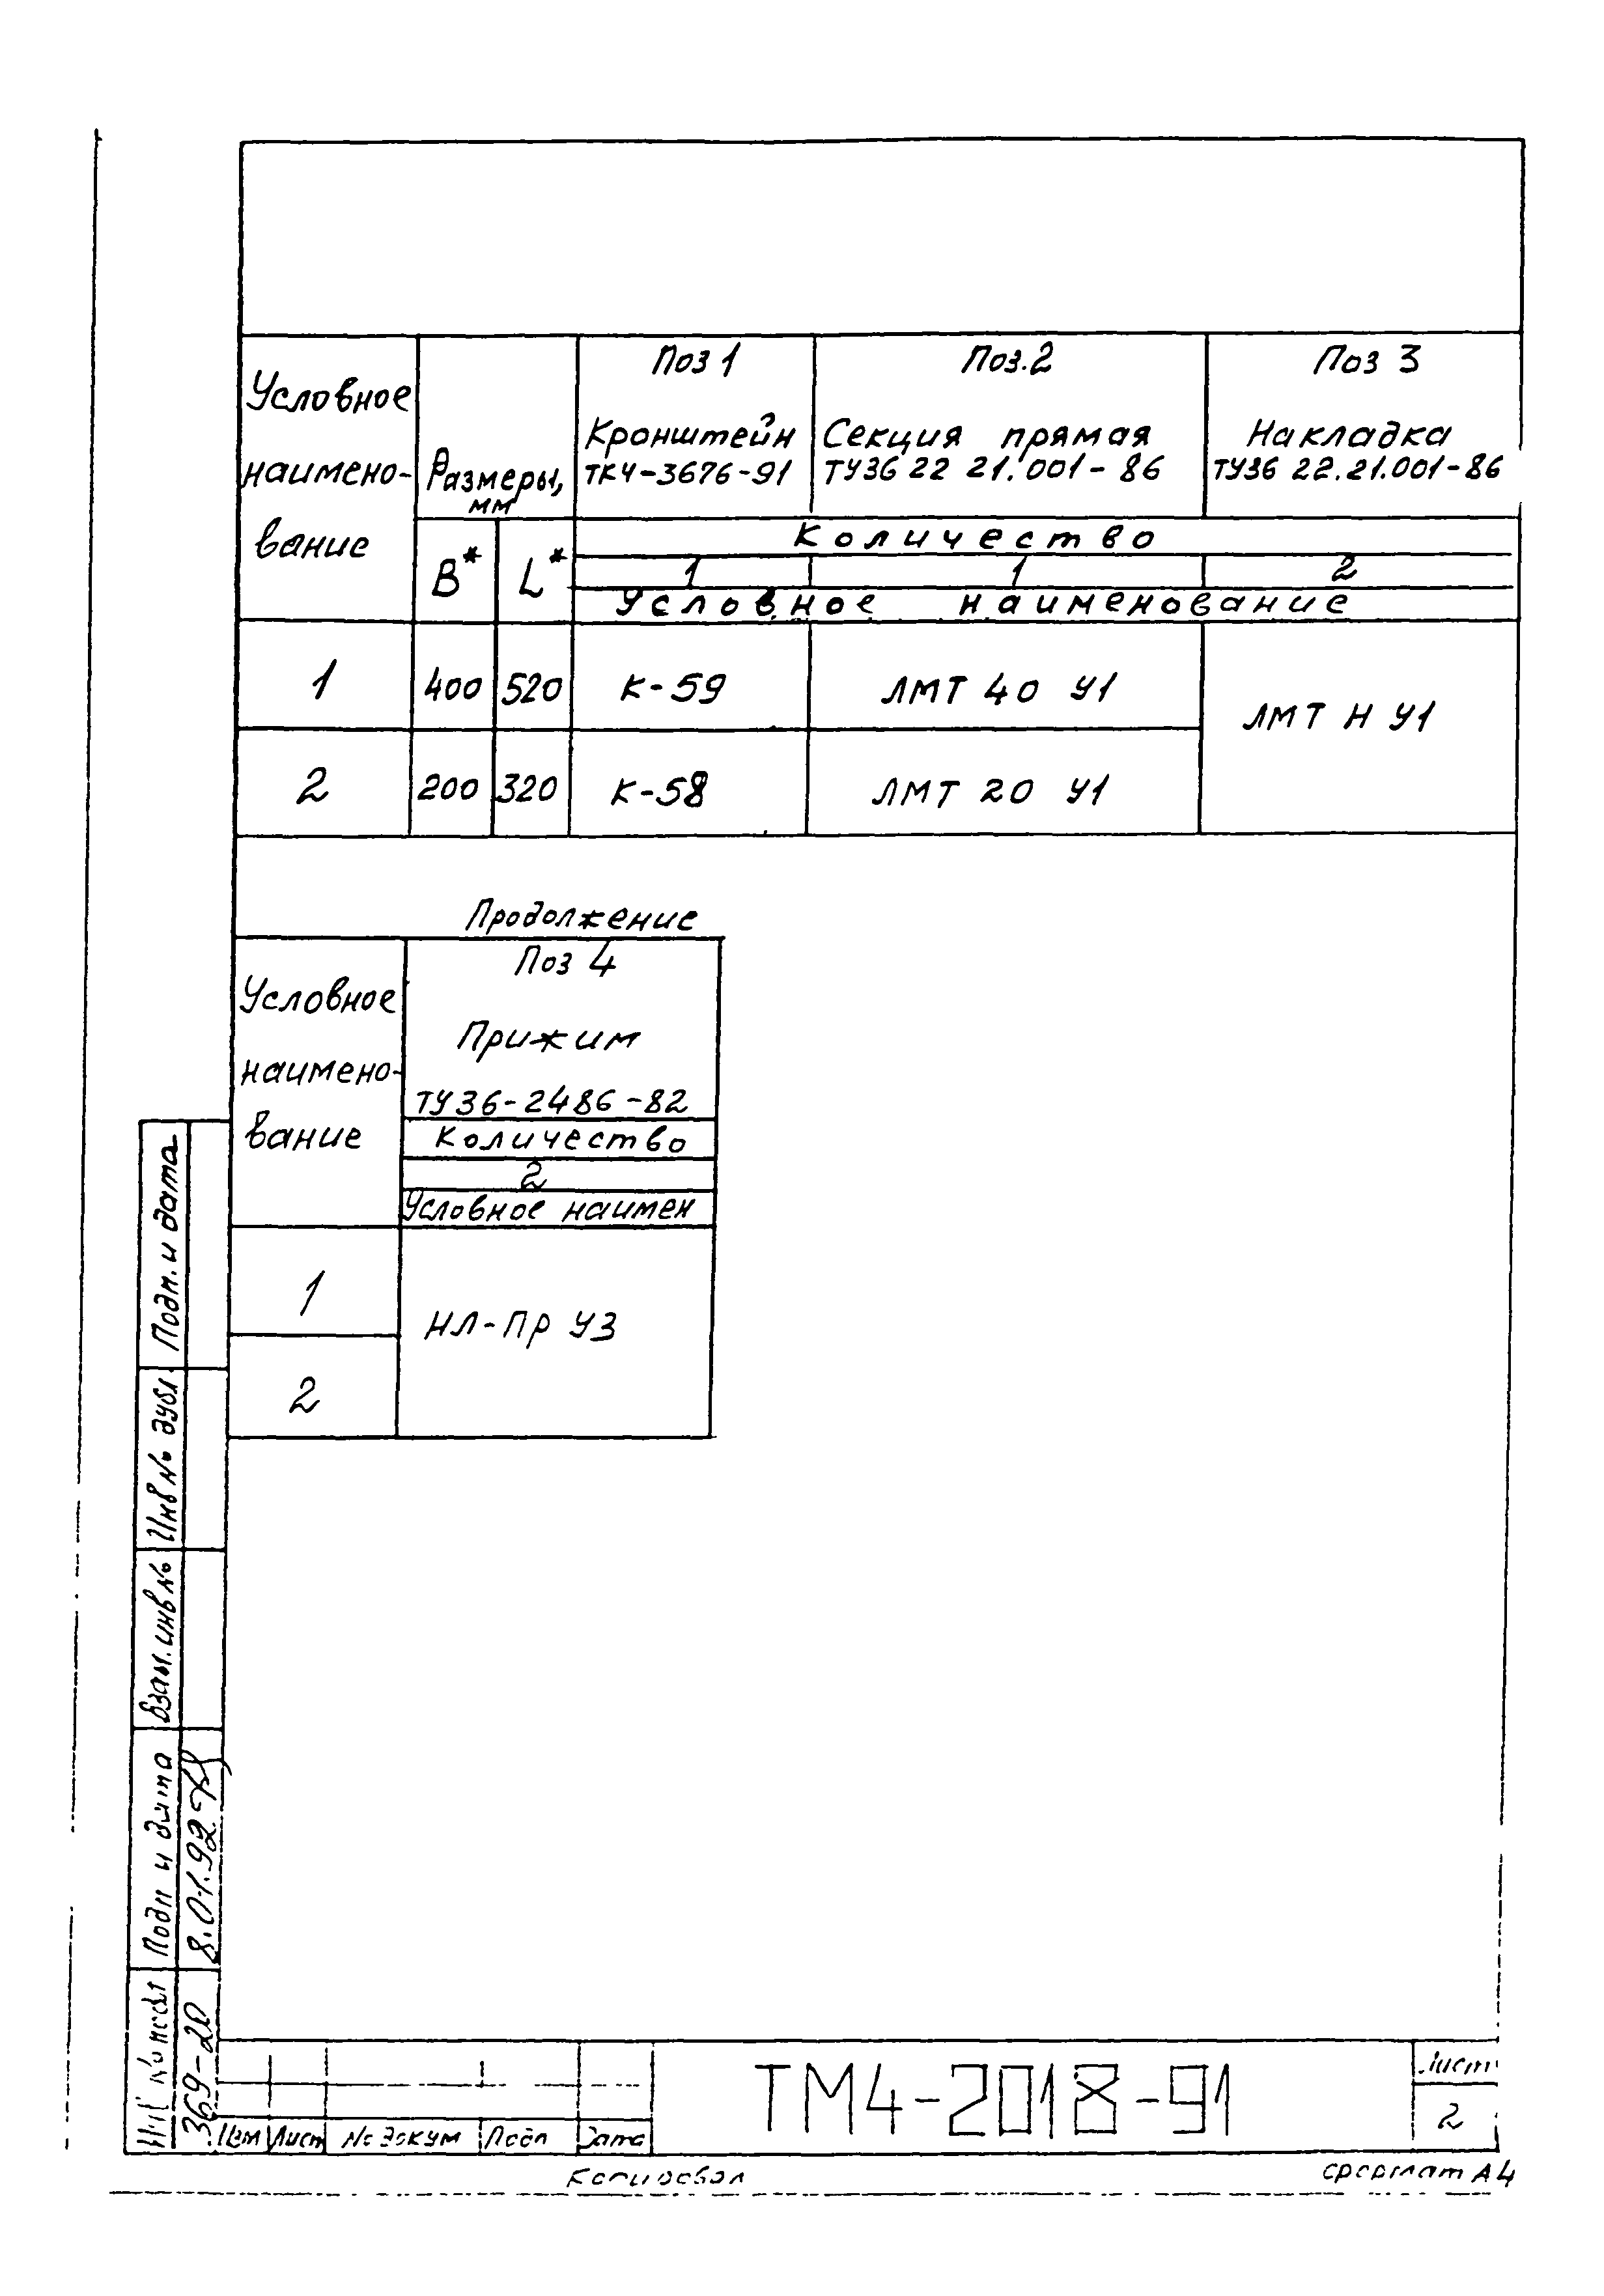 Условное наимено- вание
Размеры, мм
Поз 1
Кронштейн
ТК4-3676-91
Поз.2
Секция прямая
ТУ36 22 21.001-86
Поз 3
Накладка
ТУ36 22.21.001-86
Количество
B* L* 1 1 2
Условное наименование
1 400 520 К-59 ЛМТ 40 У1
ЛМТ Н У1
2 200 320 К-58 ЛМТ 20 У1
Продолжение
Условное
наимено-
вание
Поз 4
Прижим
ТУ36-2486-82
Количество
2
Условное наимен
1
НЛ-ПР У3
2
Подп. и дата
Инв № дубл
Взам. инв №
Подп и дата
8.01.92
369-20
Изм Лист № докум Подп Дата
ТМ4-2018-91
Лист
2
Копировал
формат А4